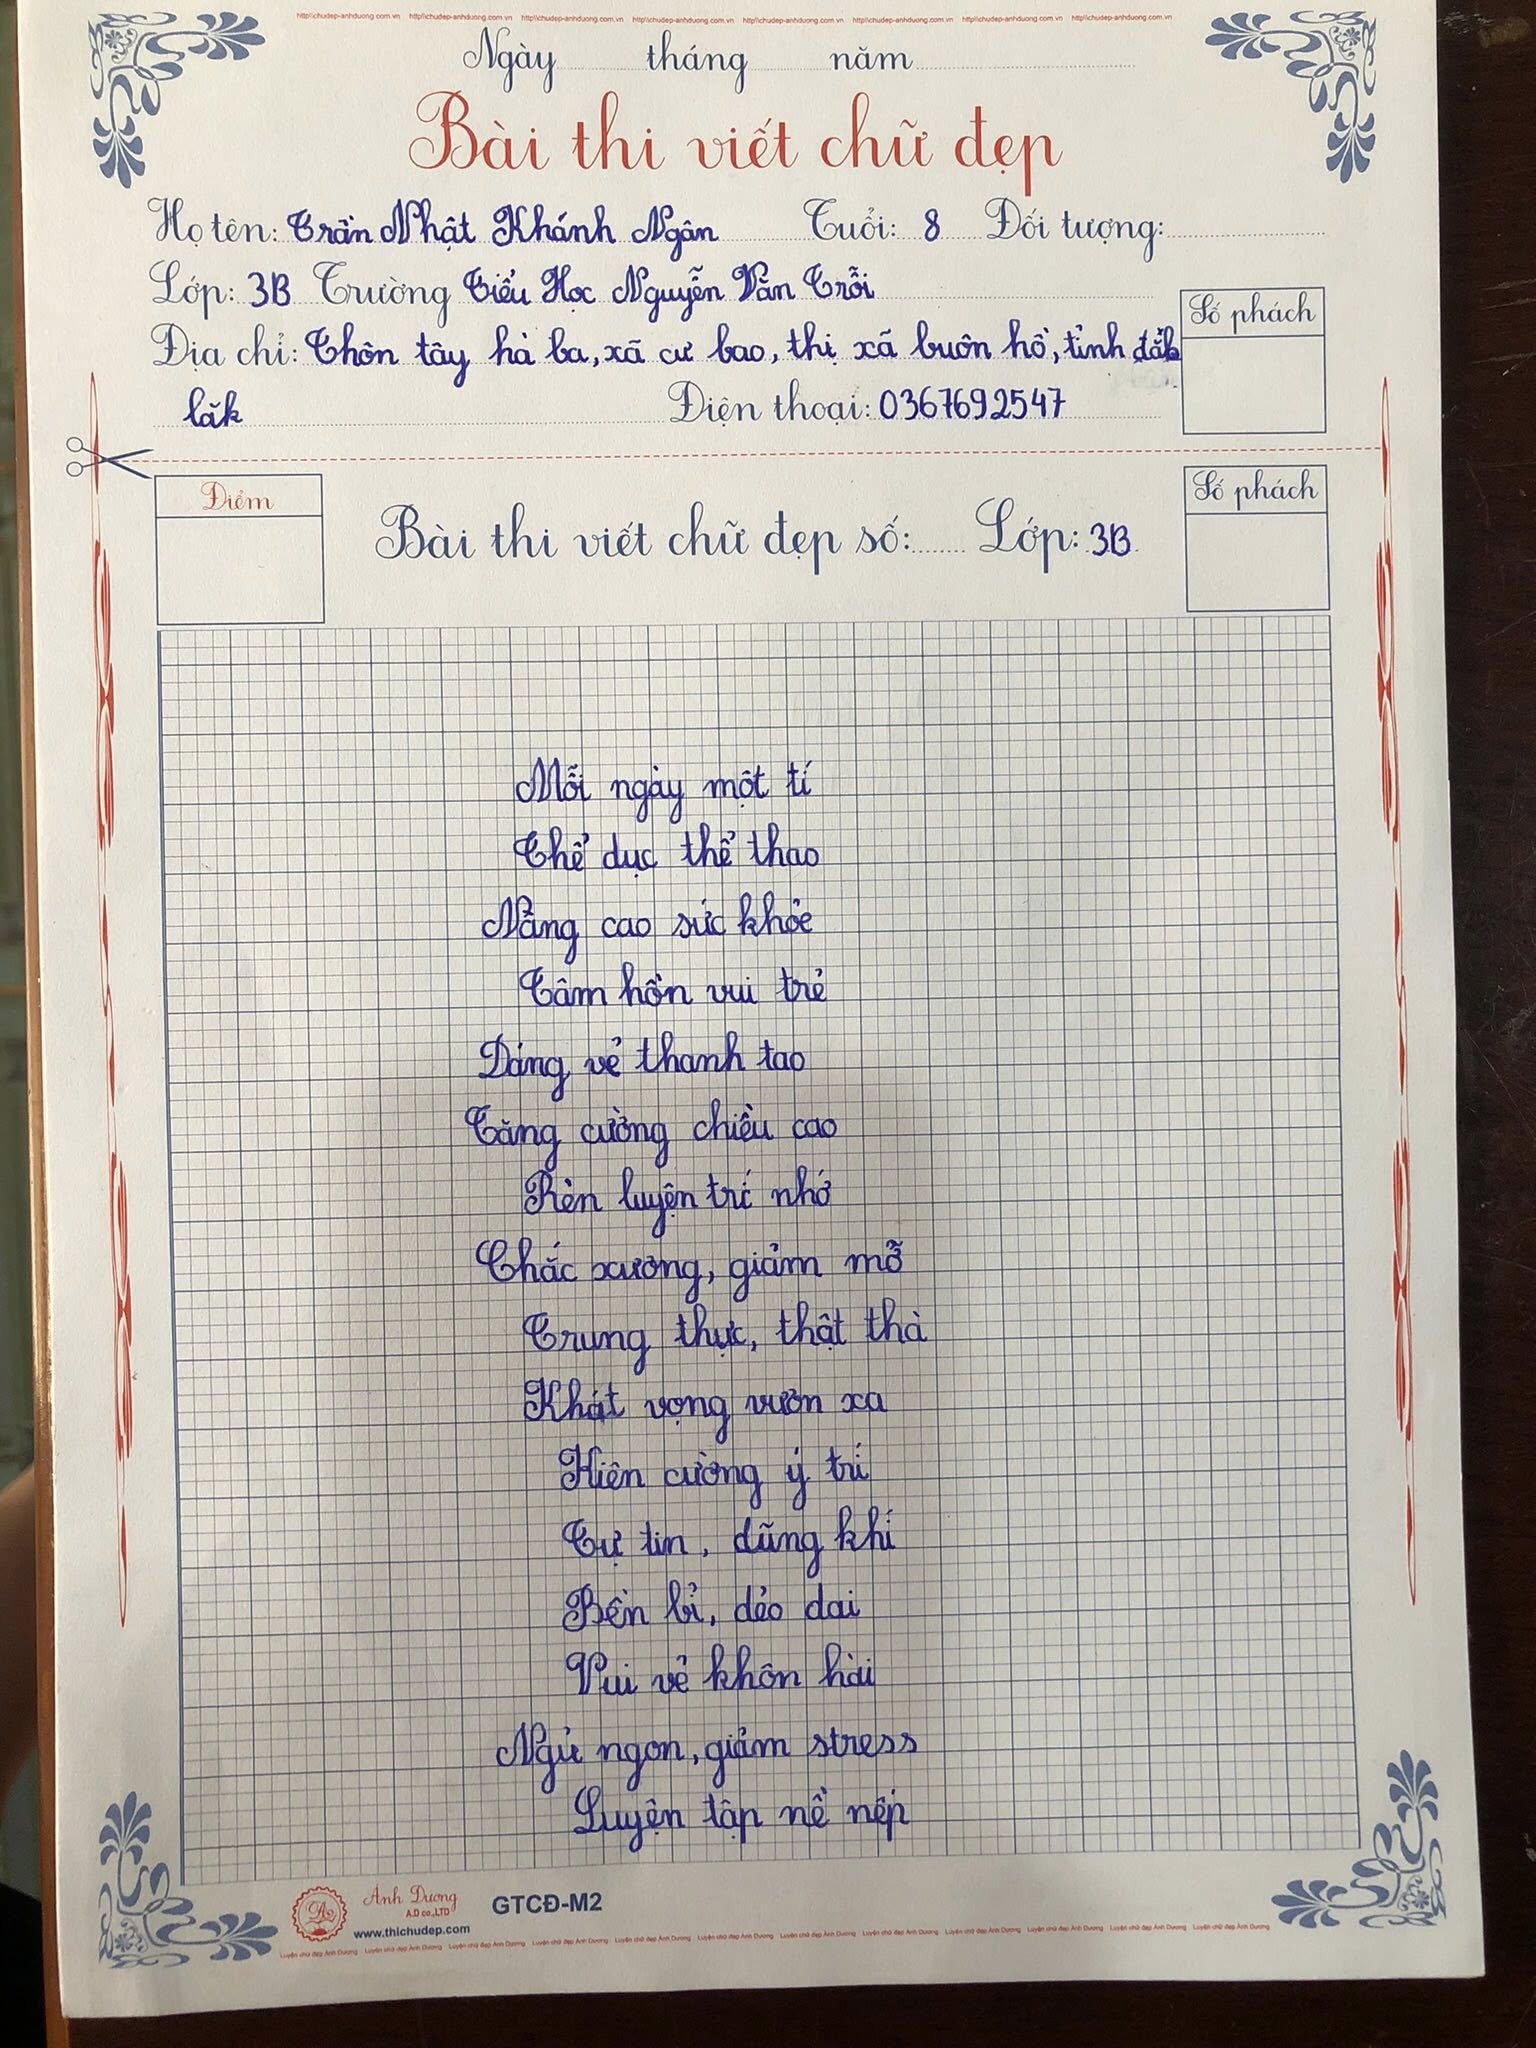 http\\chudep-anhduong.com.vn http\\chudep-anhduong.com.vn http\\chudep-anhduong.com.vn http\\chudep-anhduong.com.vn http\\chudep-anhduong.com.vn http\\chudep-anhduong.com.vn http\\chudep-anhduong.com.vn http\\chudep-anhduong.com.vn
Ngày tháng năm
Bài thi viết chữ đẹp
Họ tên: Trần Nhật Khánh Ngân Tuổi: 8 Đối tượng:
Lớp: 3B Trường Tiểu Học Nguyễn Văn Trỗi
Số phách
Địa chỉ: Thôn tây hà ba, xã cư bao, thị xã buôn hồ, tỉnh đắk
lăk Điện thoại: 0367692547
Điểm
Số phách
Bài thi viết chữ đẹp số: Lớp: 3B
Mỗi ngày một tí
Thể dục thể thao
Nâng cao sức khỏe
Tâm hồn vui trẻ
Dáng vẻ thanh tao
Tăng cường chiều cao
Rèn luyện trí nhớ
Chắc xương, giảm mỡ
Trung thực, thật thà
Khát vọng vươn xa
Kiên cường ý trí
Tự tin, dũng khí
Bền bỉ, dẻo dai
Vui vẻ khôn hài
Ngủ ngon, giảm stress
Luyện tập nề nếp
Ánh Dương
A.D co.,LTD
www.thichudep.com
GTCĐ-M2
Luyện chữ đẹp Ánh Dương Luyện chữ đẹp Ánh Dương Luyện chữ đẹp Ánh Dương Luyện chữ đẹp Ánh Dương Luyện chữ đẹp Ánh Dương Luyện chữ đẹp Ánh Dương Luyện chữ đẹp Ánh Dương Luyện chữ đẹp Ánh Dương Luyện chữ đẹp Ánh Dương Luyện chữ đẹp Ánh Dương Luyện chữ đẹp Ánh Dương Luyện chữ đẹp Ánh Dương